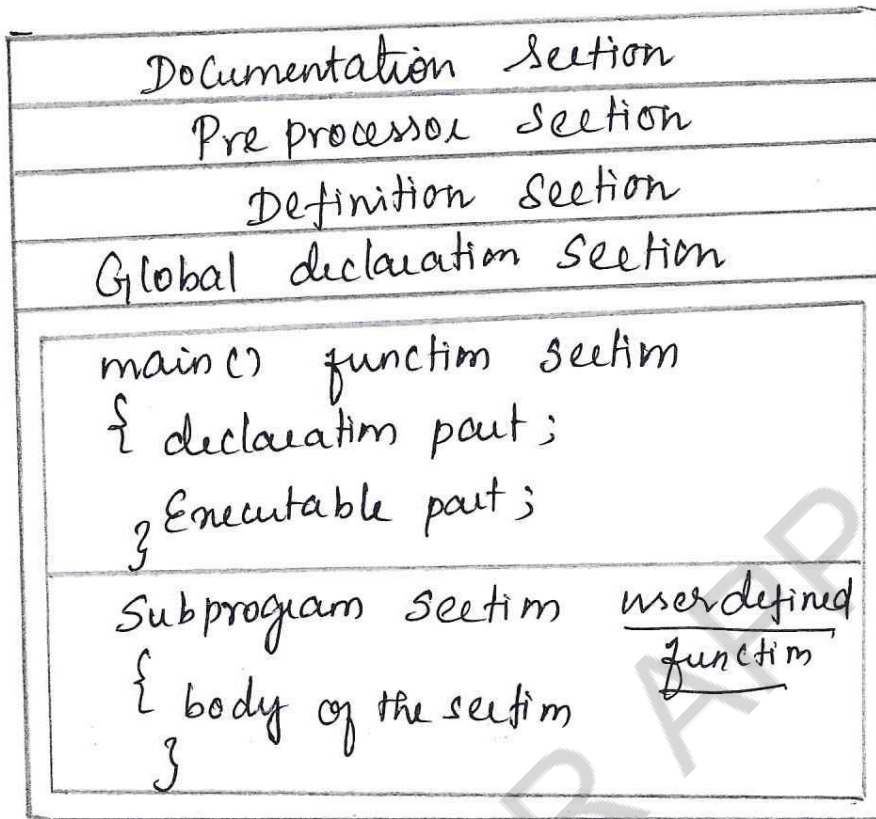 Documentation section
Pre processor section
Definition section
Global declaration section
main() function section
{ declaration part;
} Executable part;
Subprogram section userdefined
function
{ body of the section
}
R APP